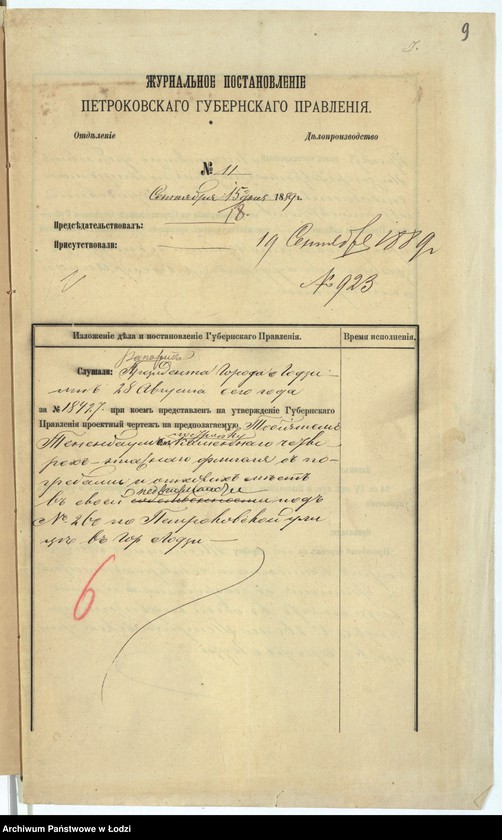 9
ЖУРНАЛЬНОЕ ПОСТАНОВЛЕНІЕ
ПЕТРОКОВСКАГО ГУБЕРНСКАГО ПРАВЛЕНІЯ.
Отдѣленіе Дѣлопроизводство
№ 11
Сентября 15 дня 1889 г.
18
Предсѣдательствовалъ:
Присутствовали:
19 Сентября 1889
№ 923
Изложеніе дѣла и постановленіе Губернскаго Правленія. Время исполненія.
Слушали: рапортъ Президента Города Лодзи
отъ 28 Августа сего года
за № 18427. при коемъ представленъ на утвержденіе Губернскаго
Правленія проектный чертежъ на предполагаемую
Тененбаумомъ постройку каменнаго четы
рехъ-этажнаго флигеля съ по-
гребами и отхожихъ мѣстъ
въ своей недвижимости подъ
№ 260 по Петроковской ули
цѣ въ гор Лодзи —
6
Archiwum Państwowe w Łodzi